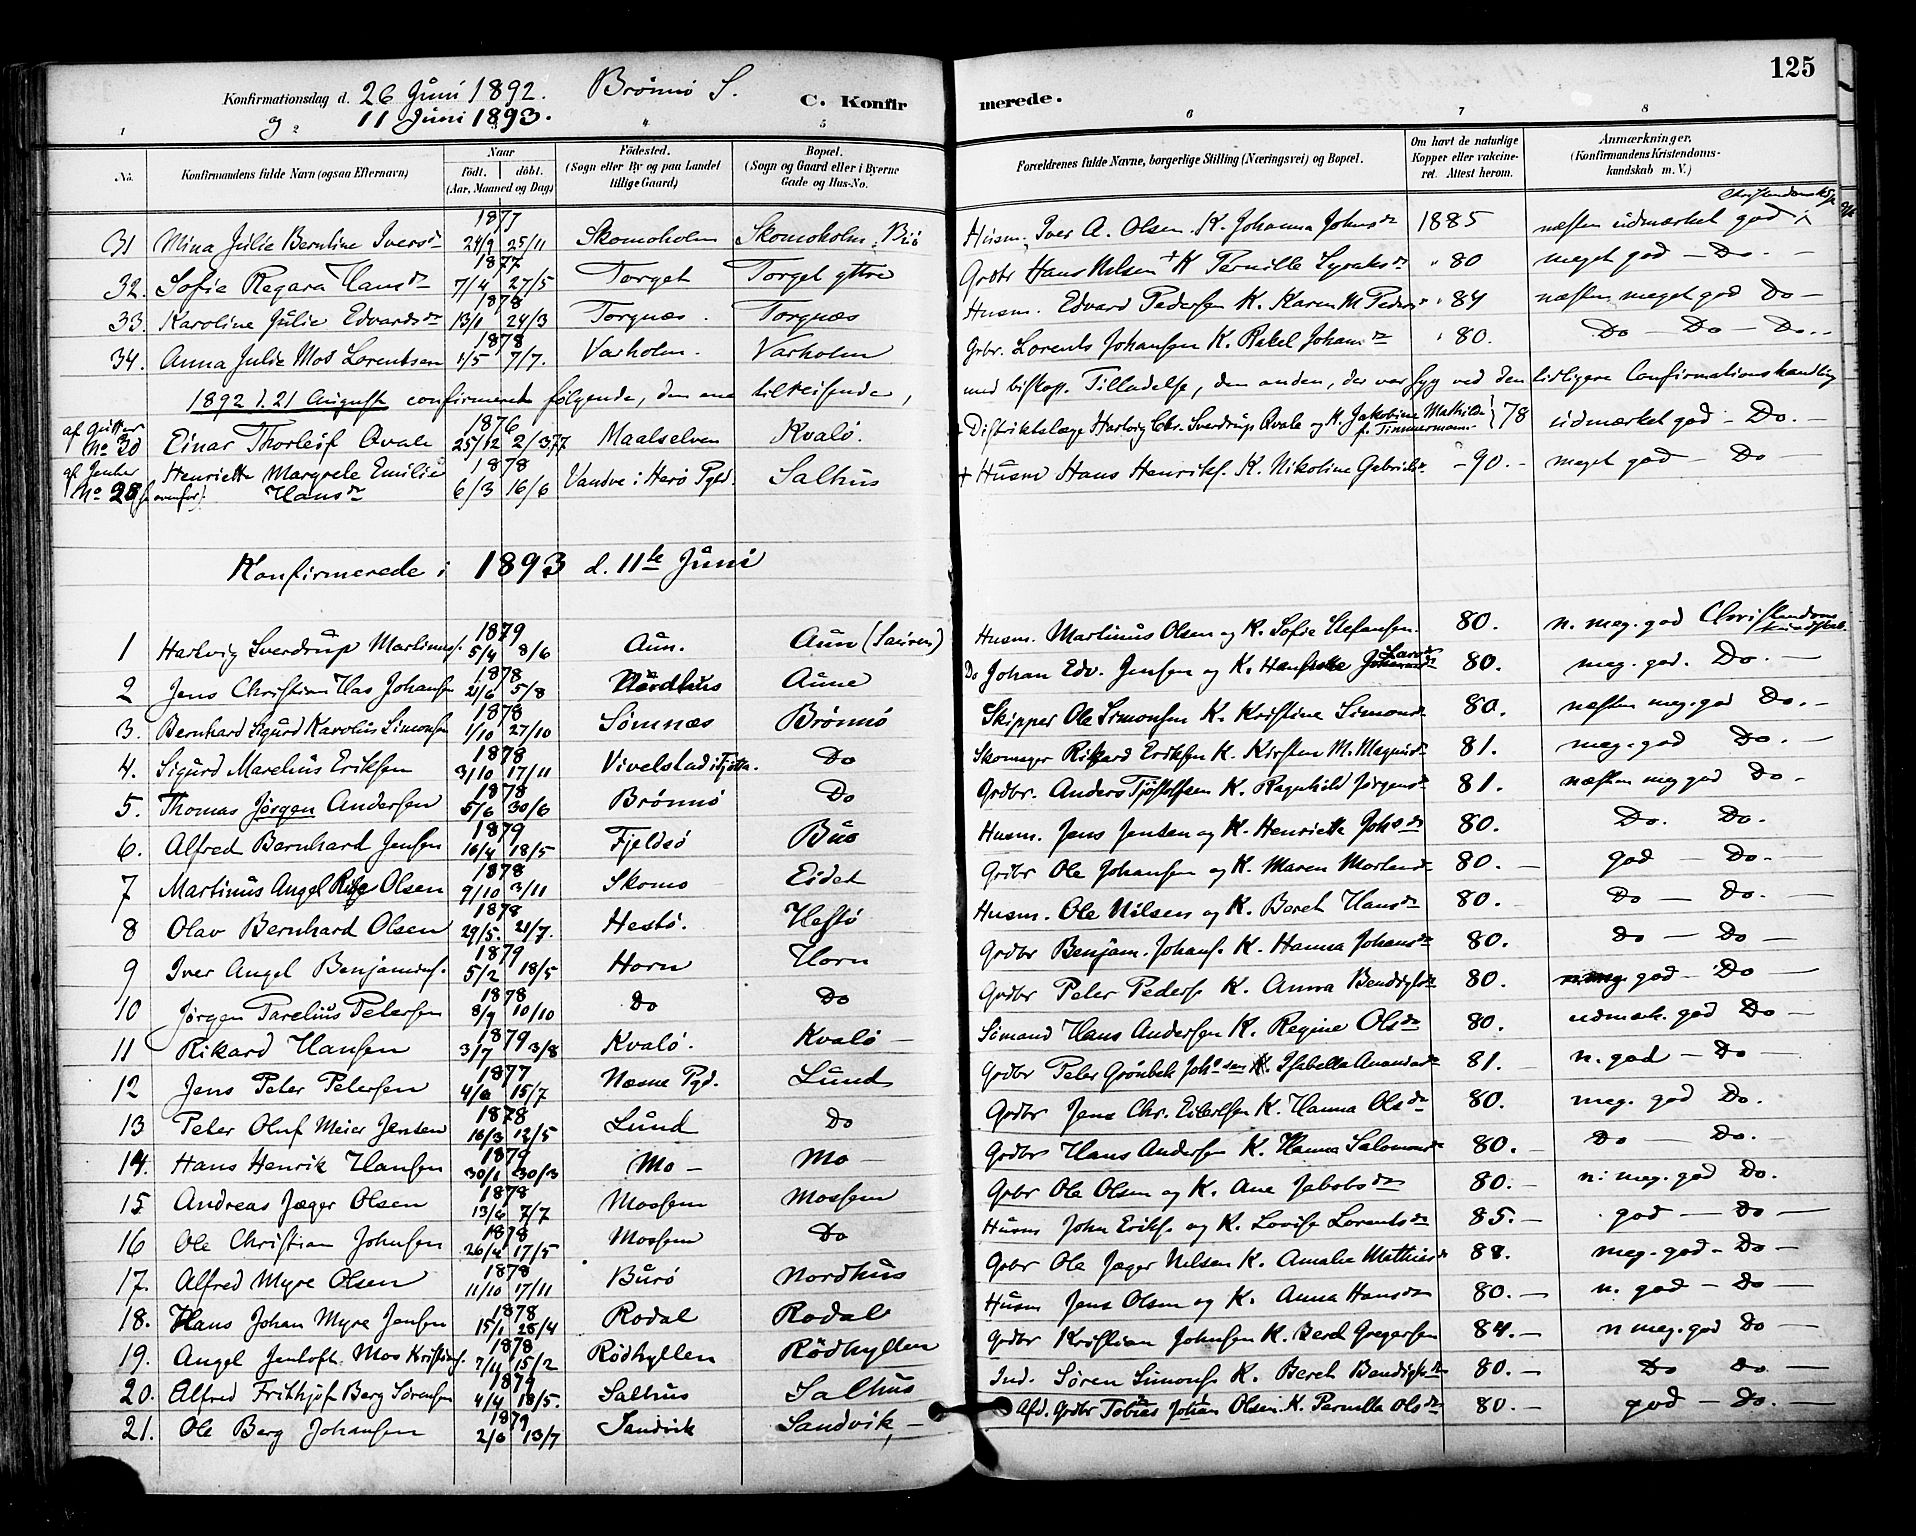 125
Konfirmationsdag d. 26 Juni 1892. Brønnø S. C. Konfirmerede.
og 11 Juni 1893.
1 2 3 4 5 6 7 8
No. Konfirmandens fulde Navn (ogsaa Efternavn) Naar Født. døbt. (Aar, Maaned og Dag) Fødested. (Sogn eller By og paa Landet tillige Gaard) Bopæl. (Sogn og Gaard eller i Byerne Gade og Hus-No. Forældrenes fulde Navne, borgerlige Stilling (Næringsvei) og Bopæl. Om havt de naturlige Kopper eller vakcineret. Attest herom. Anmærkninger. (Konfirmandens Kristendomskundskab m. V.)
31 Mina Julie Berntine Iversdr 1877 24/9 25/11 Skomoholm Skomoholm, Husm. Iver A. Olsen K. Johanna Johnsdr 1885 næsten udmærket god
32. Sofie Regara Hansdr 1877 7/4 27/5 Torget Torget yttre Grdbr Hans Nilsen K Pernille 80 meget god – Do. –
33. Karoline Julie Edvardsdr 1878 13/1 24/3 Torgnæs. Torgnæs Husm. Edvard Pedersen K. Karen M. Pedersdr 84 næsten meget god Do –
34. Anna Julie Mos Lorentsen 1878 1/5 7/7. Varholm. Varholm Grbr. Lorents Johansen K. Rakel Johansdr 80. Do – Do – Do. –
1892 d. 21 August confirmeret følgende, den ene tilreisende, med biskop. Tilladelse, den anden, der var syg ved den tidligere Confirmationshandling
af Gutter No 30 Einar Thorleif Qvale 1876 25/12 2/3 77 Maalselven Kvalø. Distriktslæge Hartvig Chr. Sverdrup Qvale og H. Jakobine Mathilde f. Timmermann 78 udmærket god – Do.
af Jenter No 28 (ovenfor). Henriette Margrete Emilie Hansdr 1878 6/3 16/6 Vandve i Herø Pgld. Salhus Husm Hans Henriks. K. Nikoline Gabrielsdr – 90. – meget god – Do –
Konfirmerede i 1893 d. 11te Juni
1 Hartvig Sverdrup Martinus. 1879 5/4 8/6 Aun. Aun Husm. Martinus Olsen og K. Sofie Stefansen. 80. n. meg. god Christendomskundskab.
2 Jens Christian Has Johansen 1878 21/6 5/8 Nordhus Aune Do Johan Edv. Jensen og K. 80. meg. god. Do. –
3. Bernhard Sigurd Karolius Simonsen 1878 1/10 27/10 Sømnæs Brønnø Skipper Ole Simonsen K. Kristine Simonsdr 80. næsten meg. god Do. –
4. Sigurd Marelius Eriksen 1878 3/10 17/11 Vivelstad i Tjøtta. Do Skomager Rikard Eriksen K. Kirsten M. Magnusdr 81. meg. god Do. –
5. Thomas Jørgen Andersen 1878 5/6 30/6 Brønnø Do Grdbr. Anders Tjøstolfsen K. Ragnhild Jørgensdr 81. næsten meg god Do –
6. Alfred Bernhard Jensen 1879 16/4 18/5 Fjeldsø Buø Husm. Jens Jensen og K. Henriette Johsdr 80. Do. Do.
7 Martinus Angel Olsen 1878 9/10 3/11 Skomo – Eidet Grdbr Ole Johansen og K. Maren Mortensdr 80. – god – Do. –
8 Olav Bernhard Olsen 1878 29/5. 21/7. Hestø. Hestø Husm. Ole Nilsen og K. Beret Hansdr 80. Do – Do. –
9 Iver Angel Benjamins. 1879 5/2 18/5 Horn Horn Grdbr Benjam. Johans. K. Hanna Johansdr 80. Do – Do –
10 Jørgen Parelius Petersen 1878 8/9 10/10 Do Do Grdbr Peter Peders. K. Anna 80. n. meg. god – Do –
11 Rikard Hansen 1879 3/7 3/8 Kvalø. Kvalø – Sømand Hans Andersen K. Regine Olsdr 80. udmærk. god Do –
12 Jens Peter Petersen 1877 4/6 15/7 Næsne Pgd. Lund Grdbr Peter Grønbek Johansen K. Isabella 81. n. god – Do –
13 Peter Oluf Meier Jensen 1878 16/3 12/5 Lund Do Grdbr Jens Chr. Eilertsen K. Hanna Olsdr 80. meg. god Do.
14. Hans Henrik Hansen 1879 30/1 30/3 Mo – Mo – Grdbr Hans Andersen K. Hanna Salomonsdr 80. – Do – Do.
15 Andreas Jæger Olsen 1878 13/6 7/7 Mossem Mossem Grbr Ole Olsen og K. Ane Jakobsdr 80. – n: meg. god Do.
16 Ole Christian Johnsen 1878 26/4 17/5 Mossem Do Husm John Eriks. og K. Lovise Lorentsdr 85. – god – Do –
17. Alfred Myre Olsen 1878 11/10 17/11 Burø Nordhus Grbr Ole Jæger Nilsen K. Amalie Mathiasdr 88. meg. god – Do –
18. Hans Johan Myre Jensen 1878 15/1 28/4 Rodal Rodal Husm Jens Olsen og K. Anna Hansdr 80. – n. god – Do –
19. Angel Jentoft Mos Kristians. 1878 7/11 15/2 Rødhyllen Rødhyllen Grdbr Kristian Johnsen K. Berel Gregersen 84. – n meg. god Do –
20. Alfred Frithjof Berg Sørensen 1879 4/4 18/5. Salhus Salhus Ind. Søren Simons. K. Beret Bendiksdr 80. – Do Do –
21. Ole Berg Johansen 1879 2/6 13/7 Sandvik Sandvik, – Afd. Grdbr Tobias Johan Olsen. K. Pernille Olsdr 80. – god – Do. –